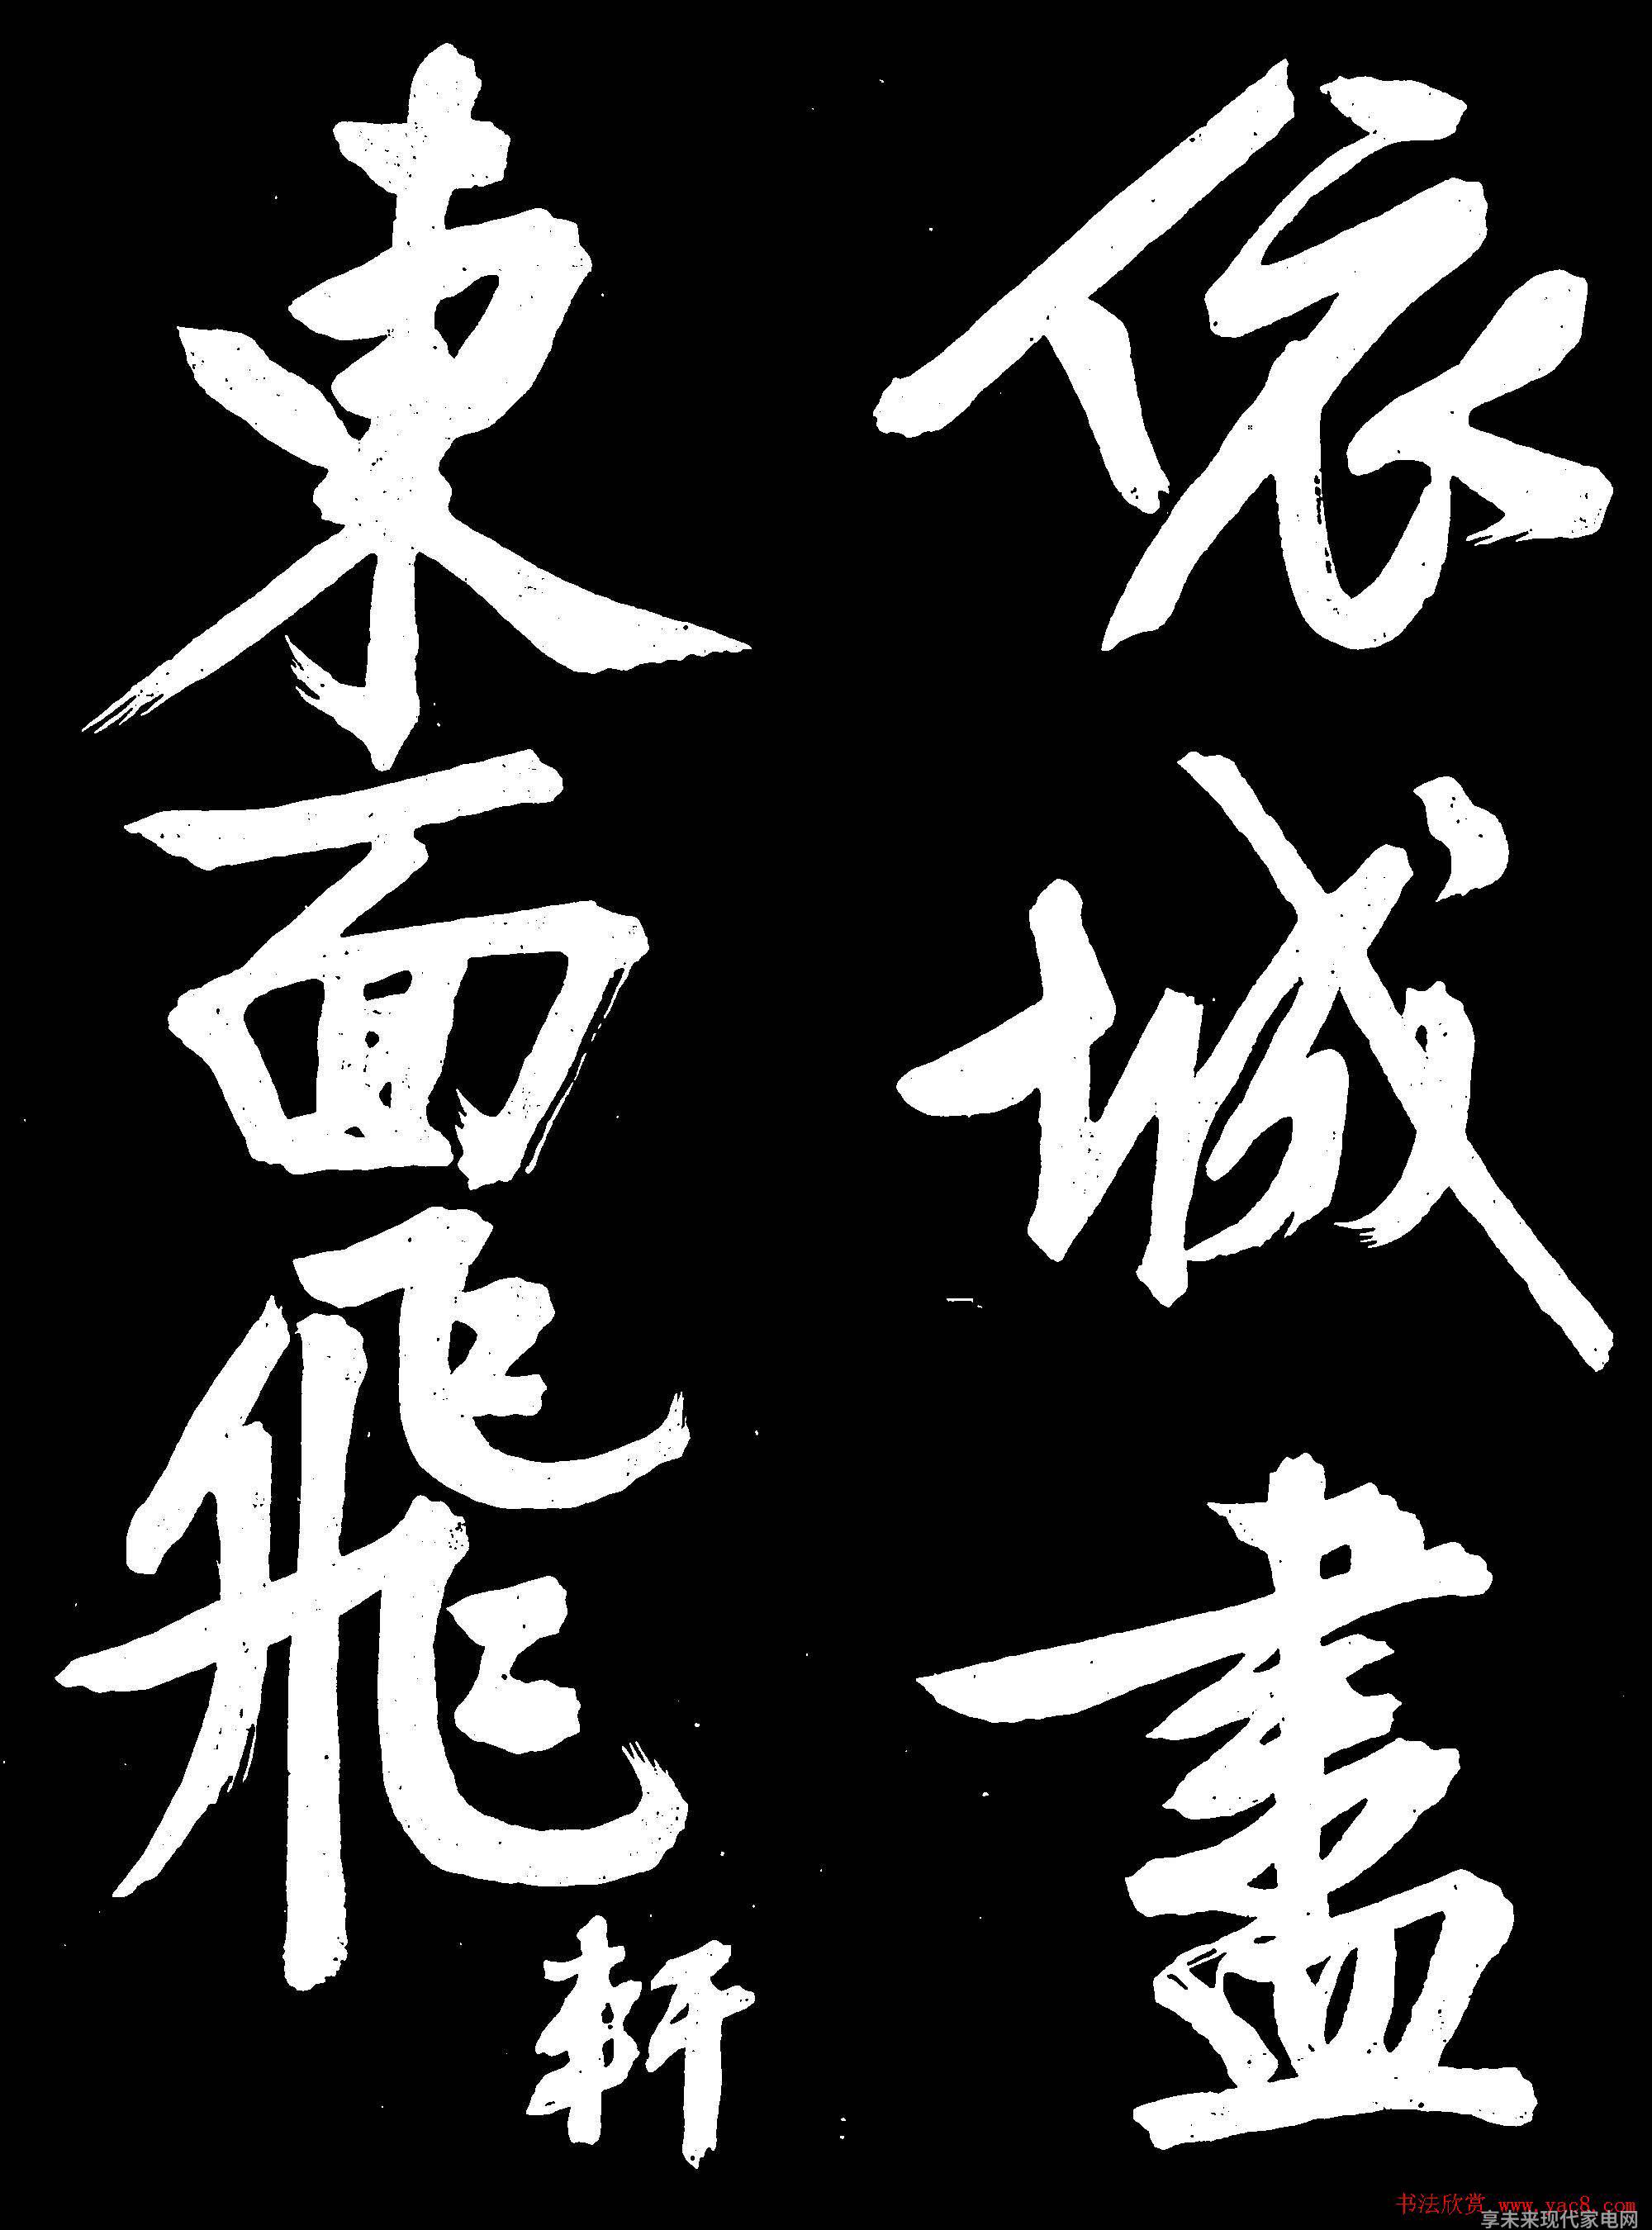 依城盡
東面飛
軒
书法欣赏 www.yac8.com
享未来现代家电网